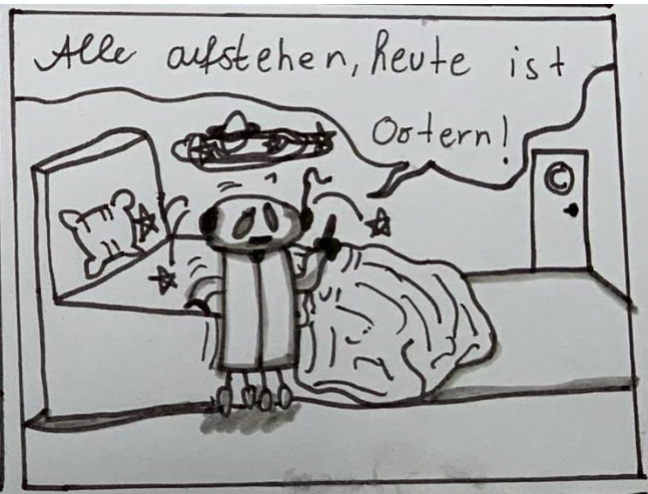 Alle aufstehen, heute ist
Ostern!
C